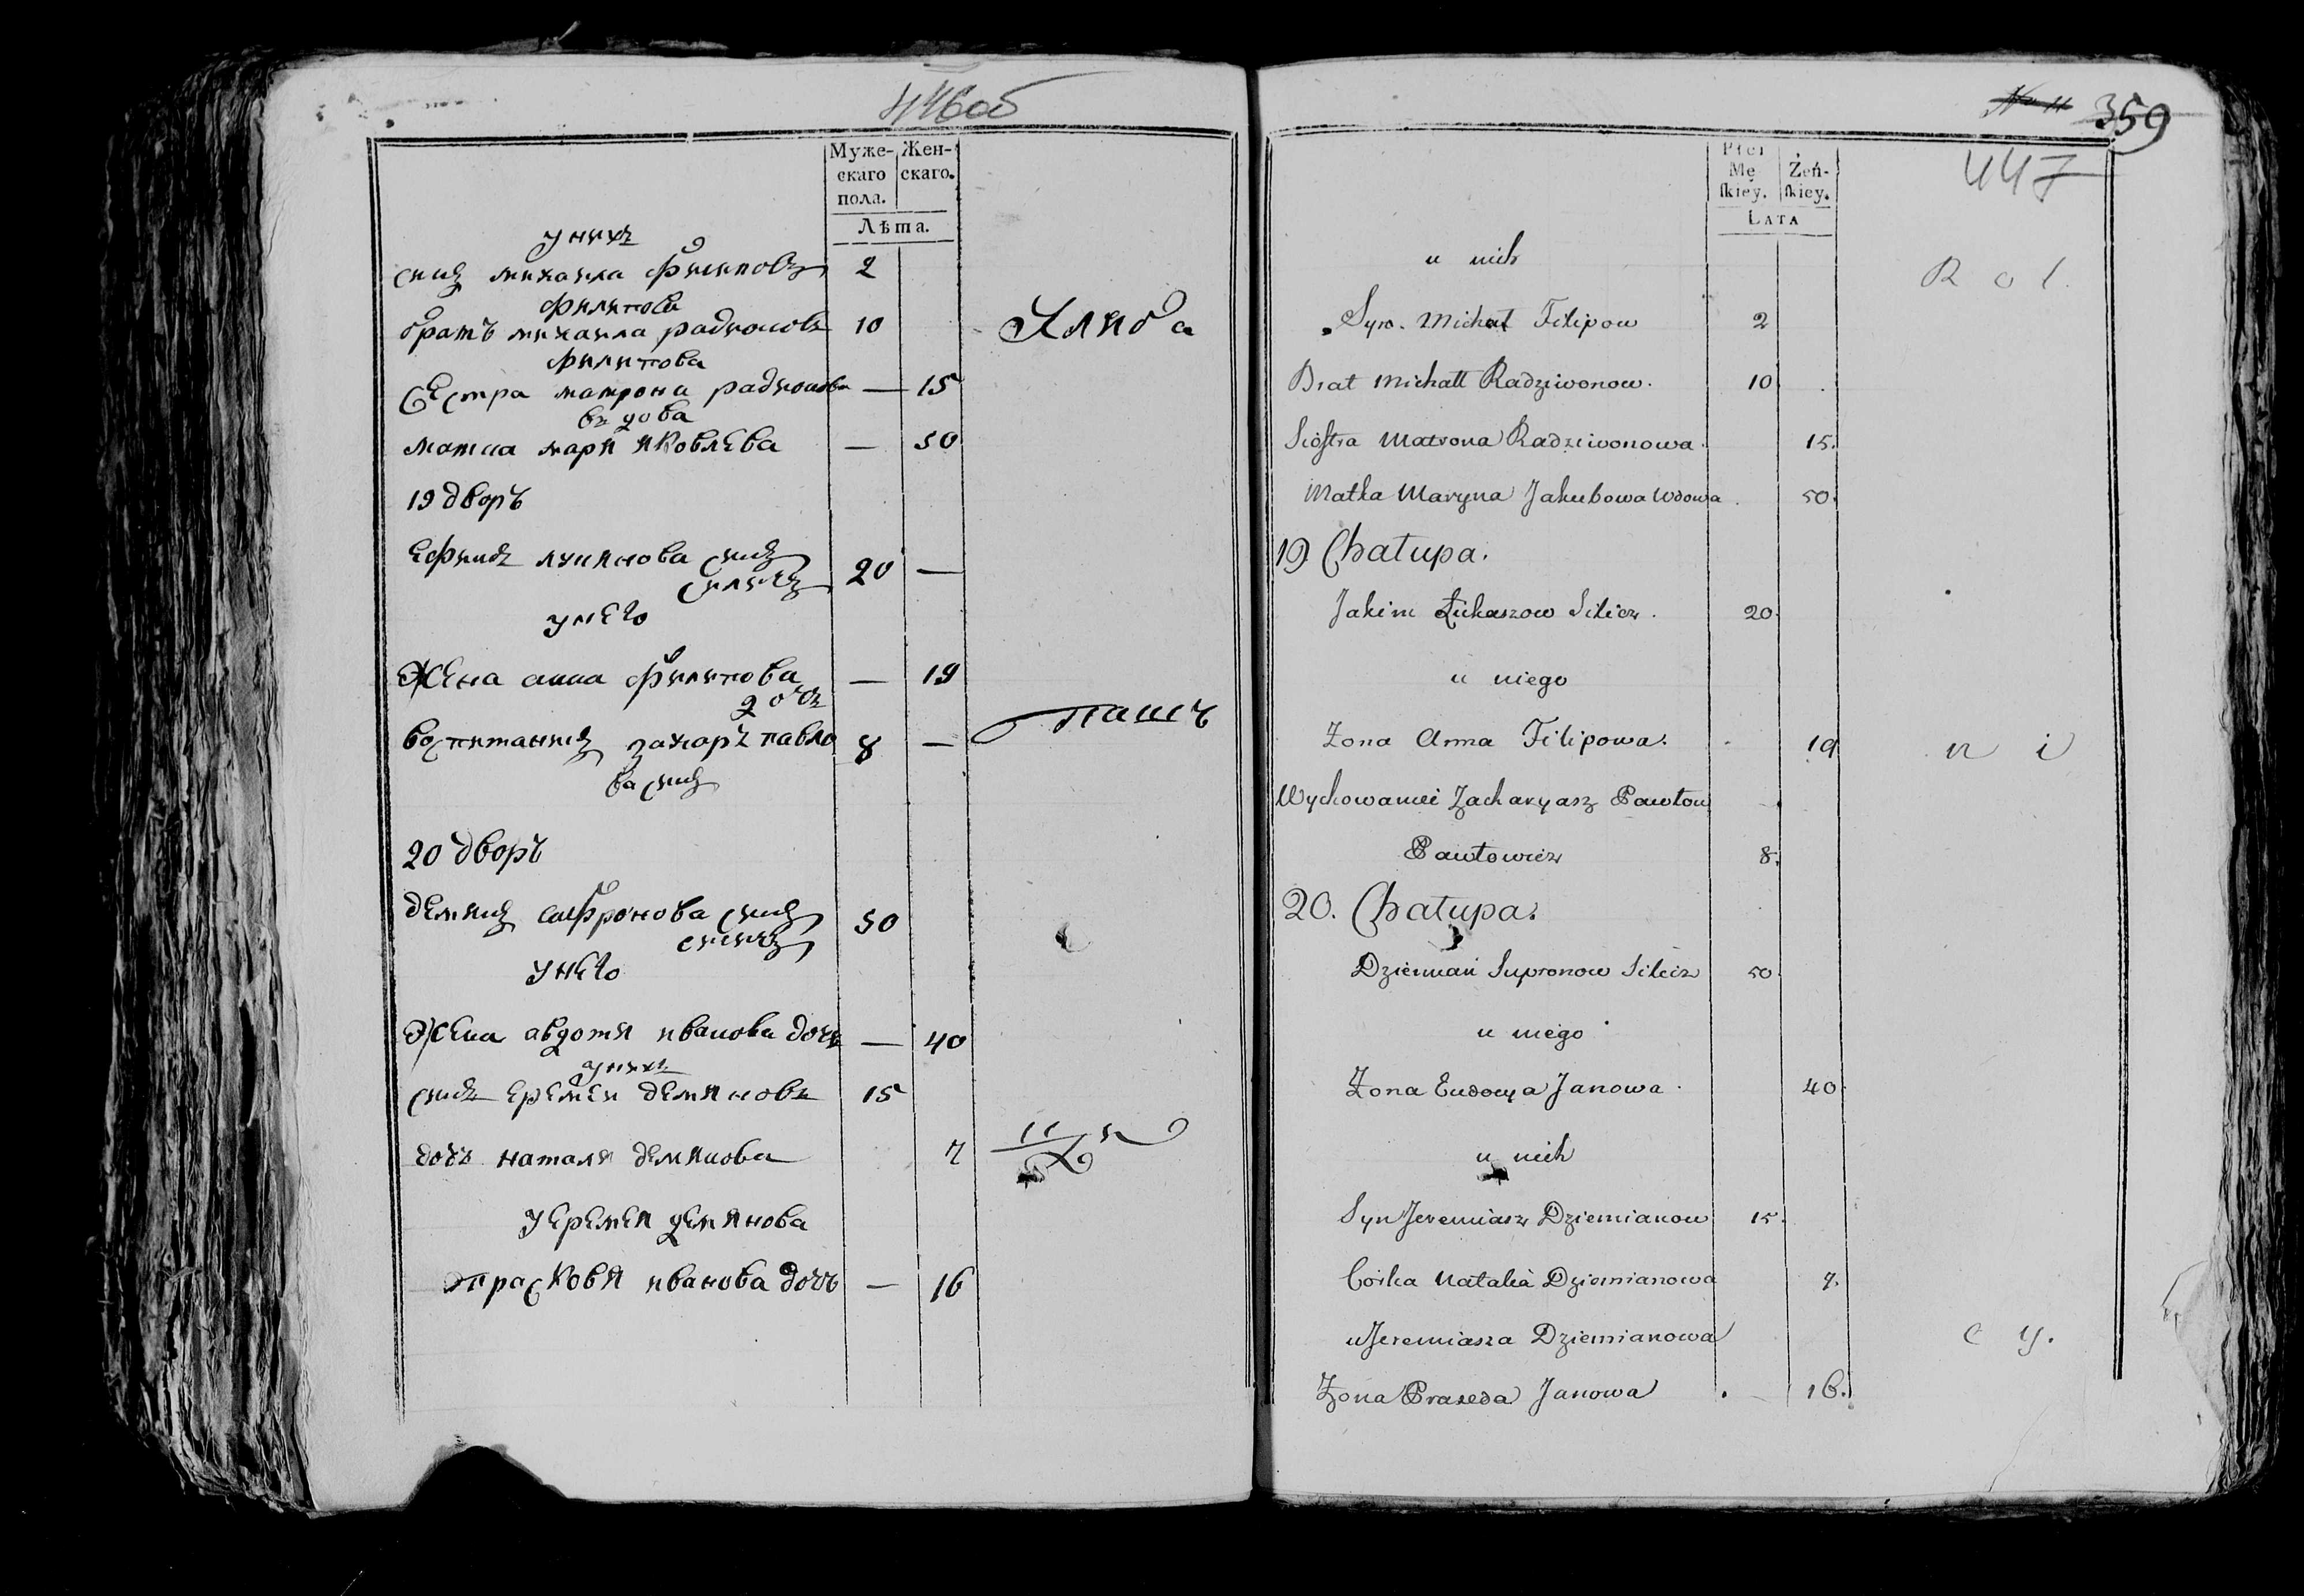 446об
Муже- Жен-
скаго скаго.
пола.
Лѣта.
у нихъ
сынъ михаила филиповъ 2
филипова
братъ михаила радионовъ 10
филипова
Сестра матрона радионова — 15
вдова
матка мар я яковлева — 50
19 дворъ
лукянова сынъ
силичъ 20 —
у него
Жена анна филипова — 19
дочь
воспитаникъ захаръ павло 8 —
ва сынъ
20 дворъ
демянъ сафронова сынъ 50
силичъ
у него
Жена авдотя иванова дочь — 40
у нихъ
сынъ еремеи демяновъ 15
дочь наталя демянова 7
у еремея демянова
прасковя иванова дочь — 16
Хлиба
пашъ
№ 11 359
447
Płci
Mę Żeń-
skiey. skiey.
LATA
u nich
Syn. Michał Filipow 2
Brat Michałł Radziwonow. 10
Siostra Matrona Radziwonowa. 15.
Matka Maryna Jakubowa Wdowa. 50.
19 Chałupa.
Jakim Łukaszow Silicz. 20.
u niego
Żona Anna Filipowa. 19
Wychowaniec Zacharyasz Pawłow
Pawłowicz 8.
20. Chałupa.
Dziemian Supronow Silicz 50.
u niego
Żona Eudocya Janowa. 40.
u nich
Syn Jeremiasz Dziemianow 15.
Corka Natalia Dziemianowa 7.
u Jeremiasza Dziemianowa
Żona Praxeda Janowa 16.
R o l
n i
c y.